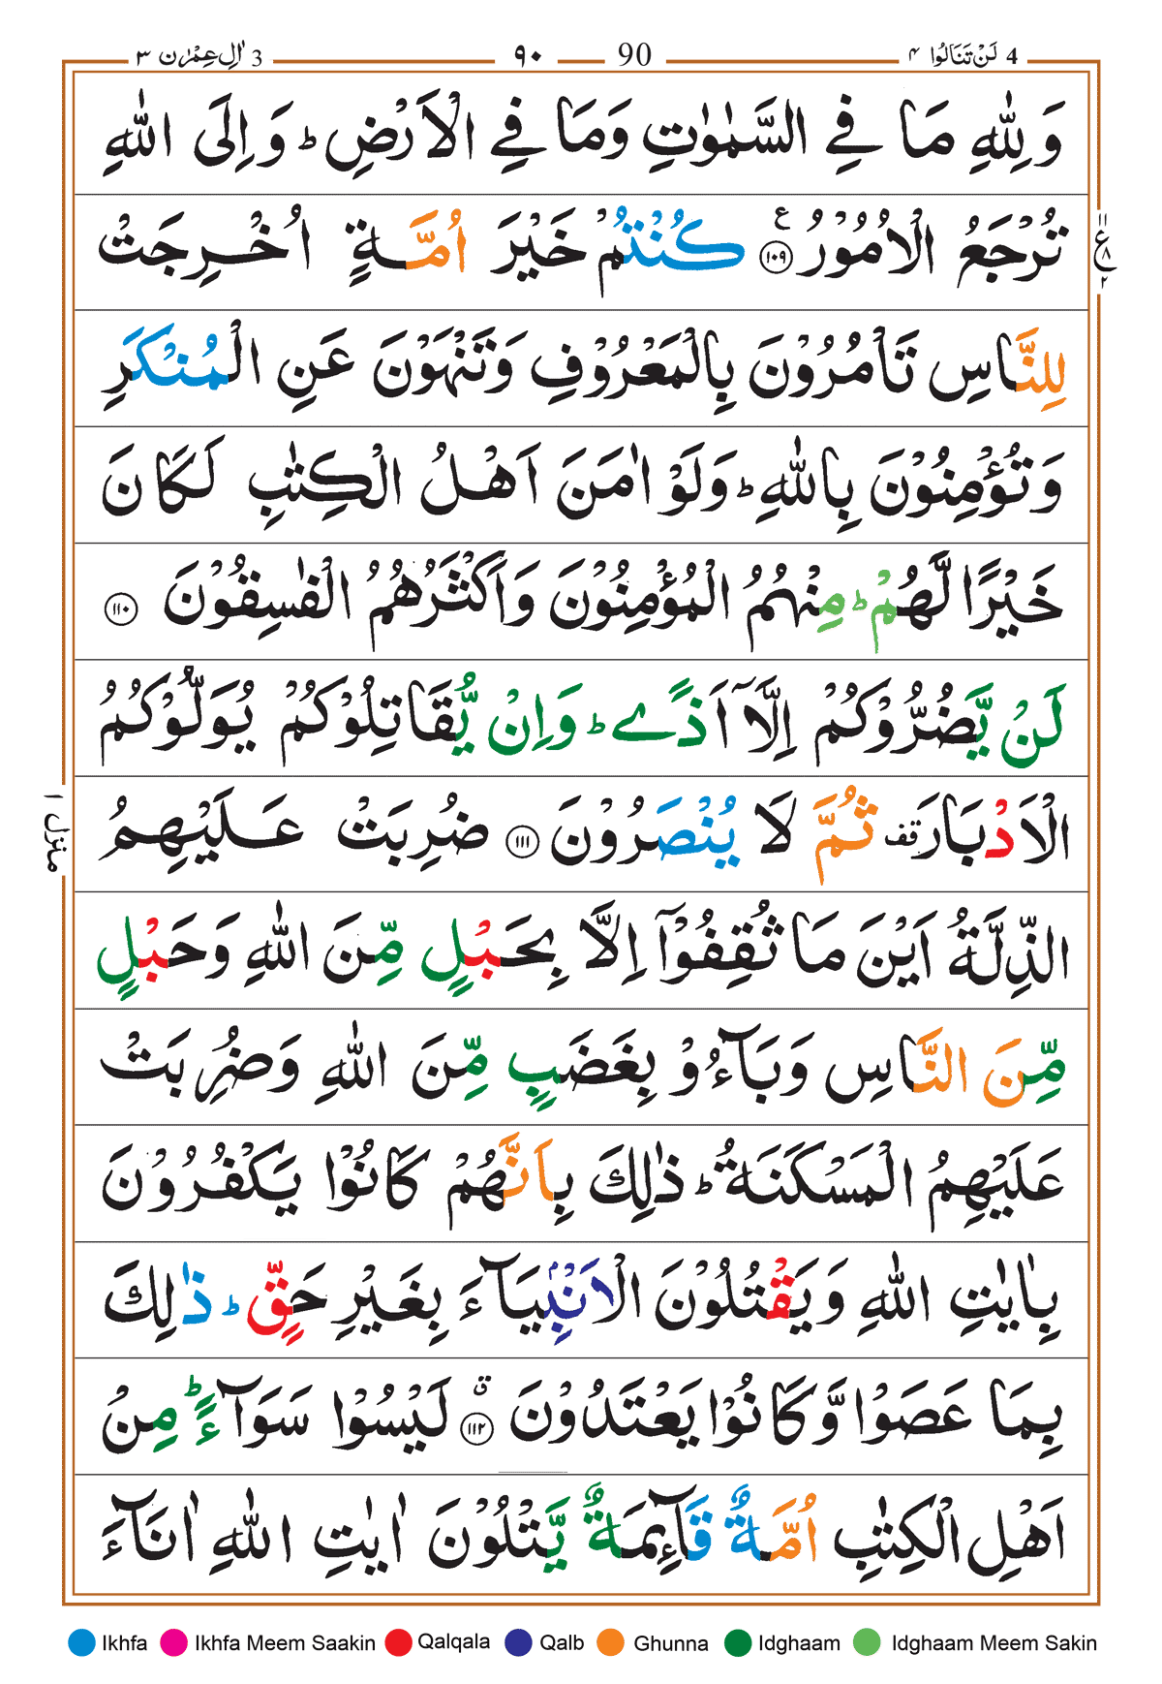 3 اٰلِ عِمْرٰن ٣ ٩٠ 90 لَنْ تَنَالُوا ٤ 4
وَلِلّٰهِ مَا فِي السَّمٰوٰتِ وَمَا فِي الْاَرْضِ ؕ وَاِلَى اللّٰهِ
تُرْجَعُ الْاُمُوْرُ ۧ ﴿۱۰۹﴾ كُنْتُمْ خَيْرَ اُمَّةٍ اُخْرِجَتْ
ع ٨ ٢
لِلنَّاسِ تَاْمُرُوْنَ بِالْمَعْرُوْفِ وَتَنْهَوْنَ عَنِ الْمُنْكَرِ
وَتُؤْمِنُوْنَ بِاللّٰهِ ؕ وَلَوْ اٰمَنَ اَهْلُ الْكِتٰبِ لَكَانَ
خَيْرًا لَّهُمْ ؕ مِنْهُمُ الْمُؤْمِنُوْنَ وَاَكْثَرُهُمُ الْفٰسِقُوْنَ ﴿۱۱۰﴾
لَنْ يَّضُرُّوْكُمْ اِلَّاۤ اَذًے ؕ وَاِنْ يُّقَاتِلُوْكُمْ يُوَلُّوْكُمُ
الْاَدْبَارَ قف ثُمَّ لَا يُنْصَرُوْنَ ﴿۱۱۱﴾ ضُرِبَتْ عَلَيْهِمُ
منزل ١
الذِّلَّةُ اَيْنَ مَا ثُقِفُوْۤا اِلَّا بِحَبْلٍ مِّنَ اللّٰهِ وَحَبْلٍ
مِّنَ النَّاسِ وَبَآءُوْ بِغَضَبٍ مِّنَ اللّٰهِ وَضُرِبَتْ
عَلَيْهِمُ الْمَسْكَنَةُ ؕ ذٰلِكَ بِاَنَّهُمْ كَانُوْا يَكْفُرُوْنَ
بِاٰيٰتِ اللّٰهِ وَيَقْتُلُوْنَ الْاَنْۢبِيَآءَ بِغَيْرِ حَقٍّ ؕ ذٰلِكَ
بِمَا عَصَوْا وَّكَانُوْا يَعْتَدُوْنَ ۗ ﴿۱۱۲﴾ لَيْسُوْا سَوَآءً ؕ مِنْ
اَهْلِ الْكِتٰبِ اُمَّةٌ قَآئِمَةٌ يَّتْلُوْنَ اٰيٰتِ اللّٰهِ اٰنَآءَ
Ikhfa Ikhfa Meem Saakin Qalqala Qalb Ghunna Idghaam Idghaam Meem Sakin